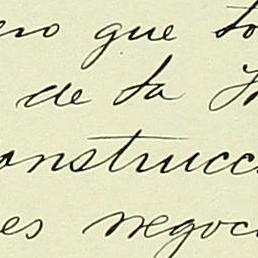 ero que to
de la
onstrucc
es negoc